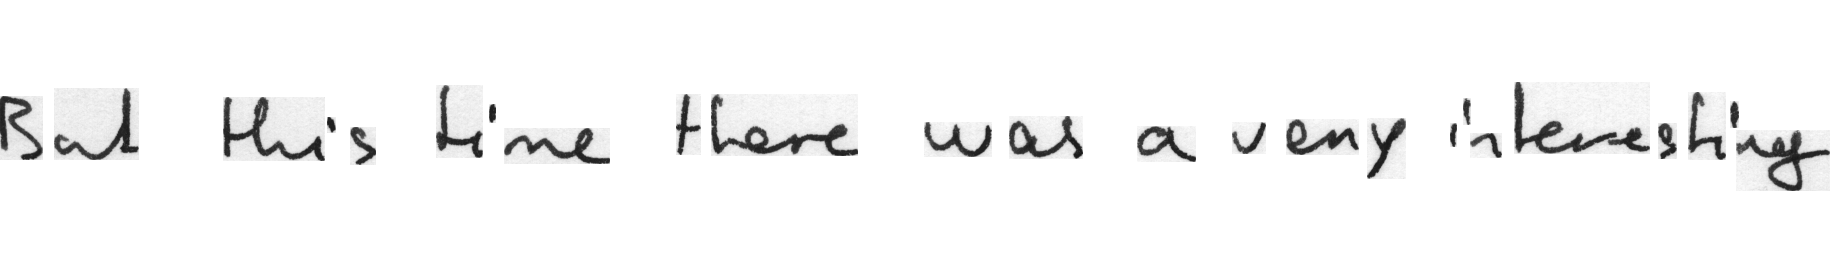 But this time there was a very interesting